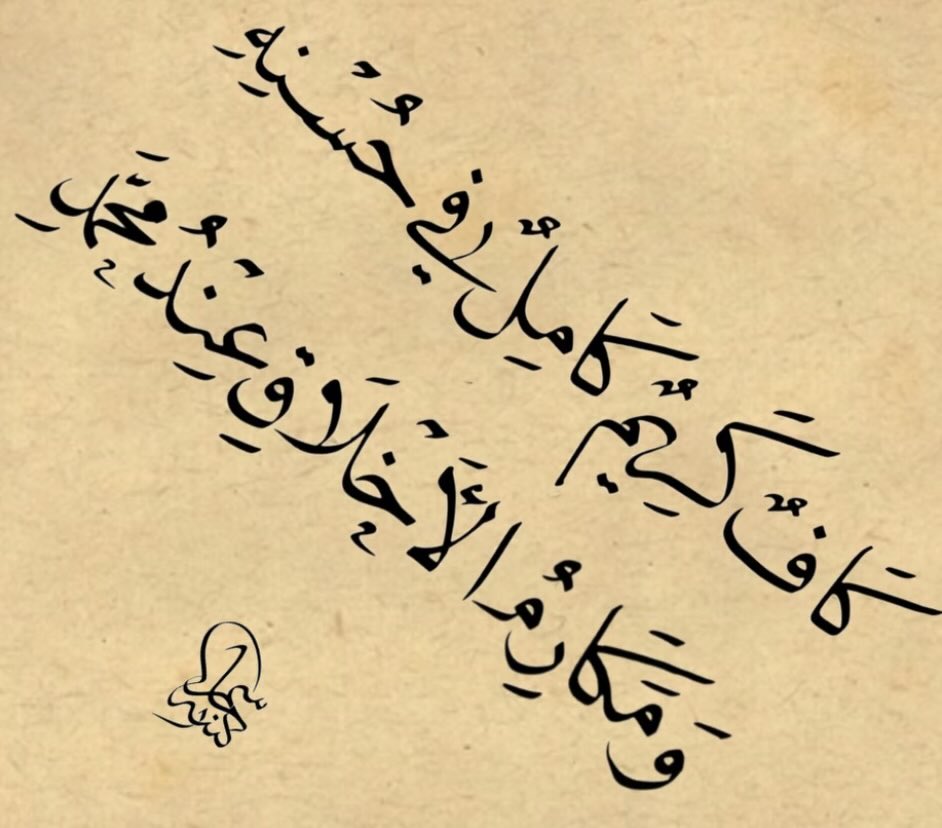 كَافٌ كَرِيمٌ كَامِلٌ فِي حُسْنِهِ
وَمَكَارِمُ الْأَخْلَاقِ عِنْدُ مُحَمَّدِ